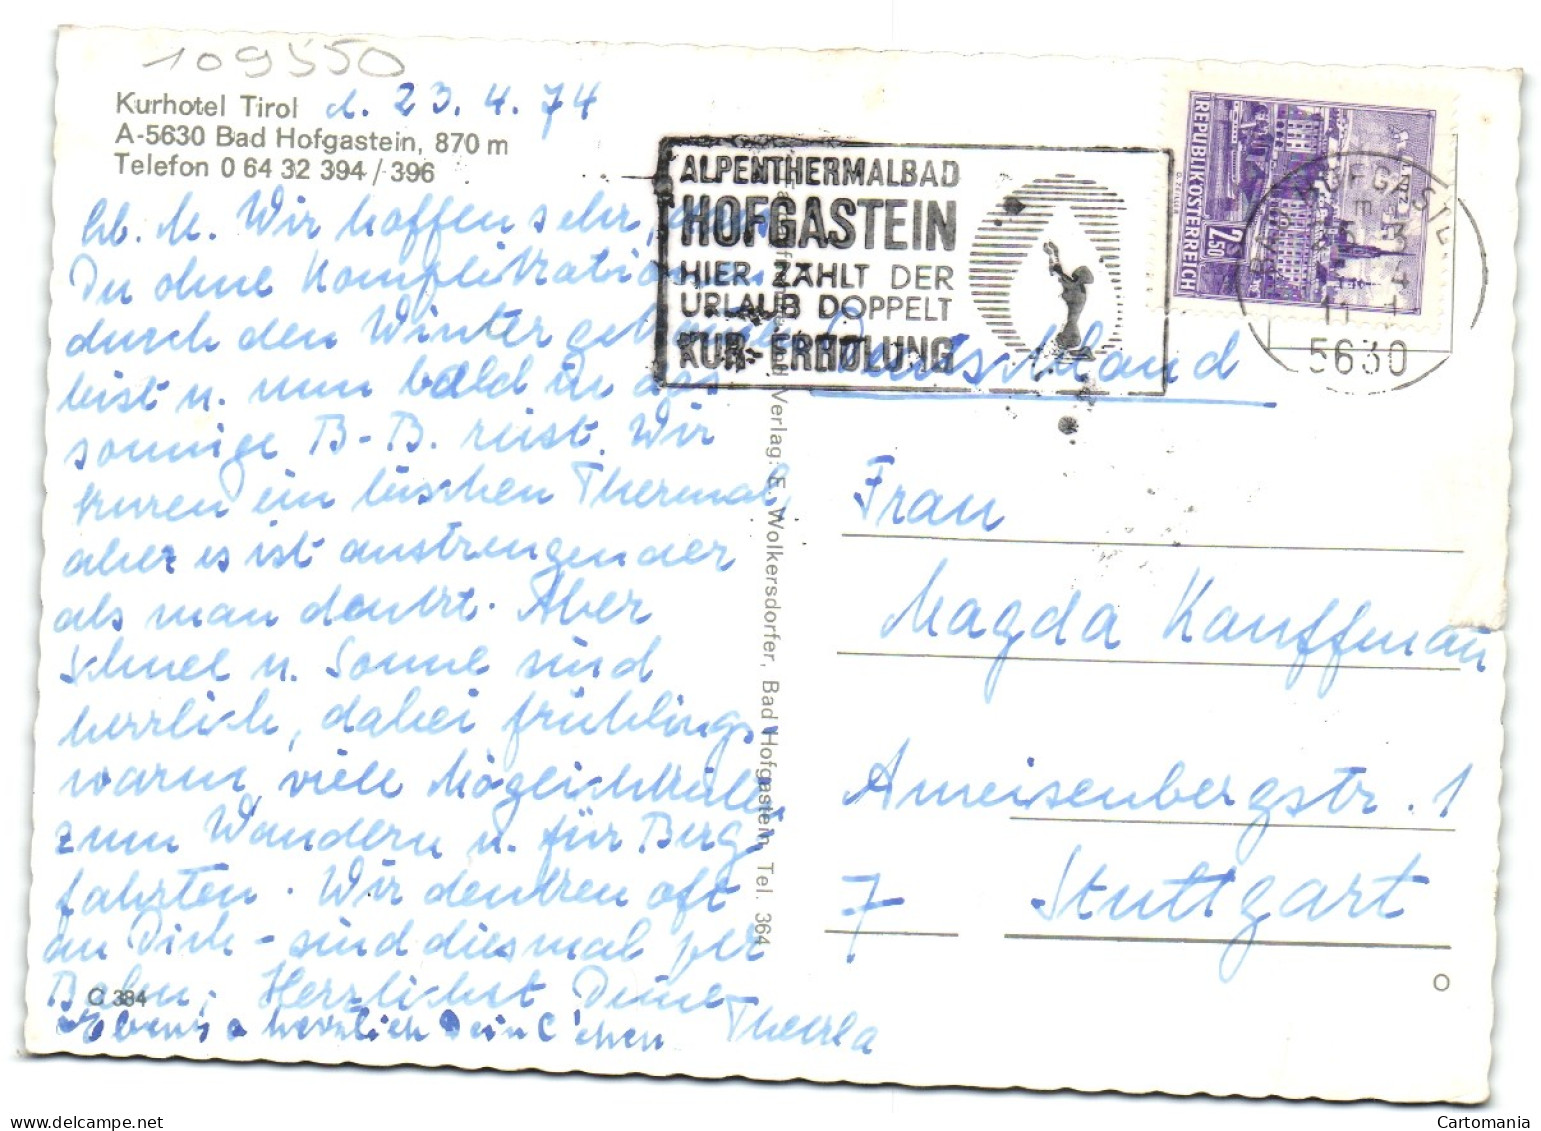 109550
Kurhotel Tirol d. 23.4.74
A-5630 Bad Hofgastein, 870 m
Telefon 0 64 32 394 / 396
lb. M. Wir hoffen sehr, dass
Du ohne Komplikationen
durch den Winter gekommen
bist u. nun bald in das
sonnige B-B. reist. Wir
kuren ein bischen Thermal,
aber es ist anstrengender
als man denkt. Aber
Schnee u. Sonne sind
herrlich, dabei frühlings
warm, viele Möglichkeiten
zum Wandern u. für Berg
fahrten. Wir denken oft
an Dich - sind diesmal per
Bahn; Herzlichst Deine
Thekla
Ebenso herzlich Dein
C 384
Verlag: E. Wolkersdorfer, Bad Hofgastein, Tel. 364
ALPENTHERMALBAD
HOFGASTEIN
HIER ZÄHLT DER
URLAUB DOPPELT
KUR-ERHOLUNG
REPUBLIK ÖSTERREICH
2.50
BAD HOFGASTEIN
5630
Deutschland
Frau
Magda Kauffmann
Ameisenbergstr. 1
7 Stuttgart
O
Cartomania
delcampe.net